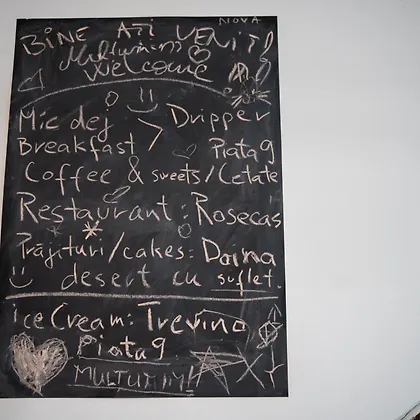 NOVA
BINE AȚI VENIT!
Multumim
Welcome
Mic dej > Dripper
Breakfast Piata 9
Coffee & sweets/Cetate
Restaurant: Rosecas
Prăjituri/cakes: Doina
desert cu suflet.
Ice Cream: Trevino
Piata 9
MULTUMIM!